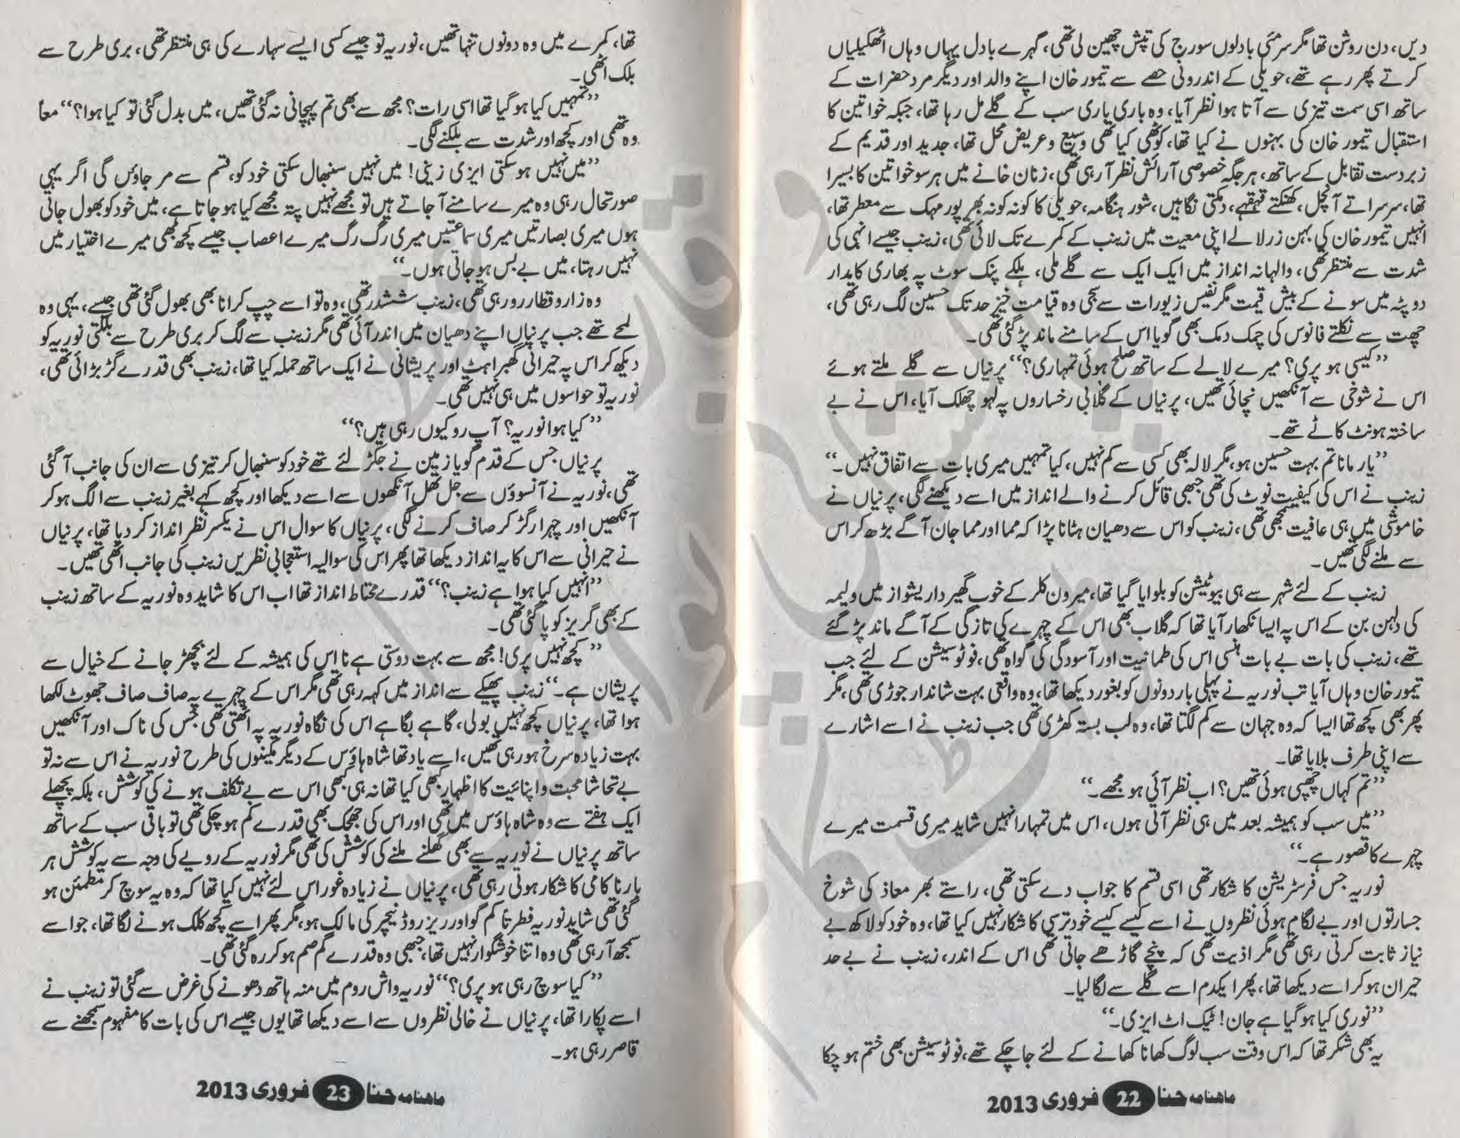 دیں، دن روشن تھا مگر سرمئی بادلوں سورج کی تپش چھین لی تھی، گہرے بادل یہاں وہاں اٹھکیلیاں
کرتے پھر رہے تھے، حویلی کے اندرونی حصے سے تیمور خان اپنے والد اور دیگر مرد حضرات کے
ساتھ اسی سمت تیزی سے آتا ہوا نظر آیا، وہ باری باری سب کے گلے مل رہا تھا، جبکہ خواتین کا
استقبال تیمور خان کی بہنوں نے کیا تھا، کوٹھی کیا تھی وسیع و عریض محل تھا، جدید اور قدیم کے
زبردست تقابل کے ساتھ، ہر جگہ خصوصی آرائش نظر آ رہی تھی، زنان خانے میں ہر سو خواتین کا بسیرا
تھا، سرسراتے آنچل، کھنکتے قہقہے، دمکتی نگاہیں، شور ہنگامہ، حویلی کا کونہ کونہ بھرپور مہک سے معطر تھا،
انہیں تیمور خان کی بہن زرلالے اپنی معیت میں زینب کے کمرے تک لائی تھی، زینب جیسے انہی کی
شدت سے منتظر تھی، والہانہ انداز میں ایک ایک سے گلے ملی، ہلکے پنک سوٹ پہ بھاری کامدار
دوپٹہ میں سونے کے بیش قیمت مگر نفیس زیورات سے سجی وہ قیامت خیز حد تک حسین لگ رہی تھی،
چھت سے نکلتے فانوس کی چمک دمک بھی گویا اس کے سامنے ماند پڑ گئی تھی۔
’’کیسی ہو پری؟ میرے لالے کے ساتھ صلح ہوئی تمہاری؟‘‘ پرنیاں سے گلے ملتے ہوئے
اس نے شوخی سے آنکھیں نچائی تھیں، پرنیاں کے گلابی رخساروں پہ لہو چھلک آیا، اس نے بے
ساختہ ہونٹ کاٹے تھے۔
’’یار مانا تم بہت حسین ہو، مگر لالہ بھی کسی سے کم نہیں، کیا تمہیں میری بات سے اتفاق نہیں۔‘‘
زینب نے اس کی کیفیت نوٹ کی تھی جبھی قائل کرنے والے انداز میں اسے دیکھنے لگی، پرنیاں نے
خاموشی میں ہی عافیت سمجھی تھی، زینب کو اس سے دھیان ہٹانا پڑا کہ مما اور مما جان آگے بڑھ کر اس
سے ملنے لگی تھیں۔
زینب کے لئے شہر سے ہی بیوٹیشن کو بلوایا گیا تھا، میرون کلر کے خوب گھیردار پشواز میں ولیمہ
کی دلہن بن کے اس پہ ایسا نکھار آیا تھا کہ گلاب بھی اس کے چہرے کی تازگی کے آگے ماند پڑ گئے
تھے، زینب کی بات بے بات ہنسی اس کی طمانیت اور آسودگی کی گواہ تھی، فوٹوسیشن کے لئے جب
تیمور خان وہاں آیا تب نوریہ نے پہلی بار دونوں کو بغور دیکھا تھا، وہ واقعی بہت شاندار جوڑی تھی، مگر
پھر بھی کچھ تھا ایسا کہ وہ جہان سے کم لگتا تھا، وہ لب بستہ کھڑی تھی جب زینب نے اسے اشارے
سے اپنی طرف بلایا تھا۔
’’تم کہاں چھپی ہوئی تھیں؟ اب نظر آئی ہو مجھے۔‘‘
’’میں سب کو ہمیشہ بعد میں ہی نظر آتی ہوں، اس میں تمہارا نہیں شاید میری قسمت میرے
چہرے کا قصور ہے۔‘‘
نوریہ جس فرسٹریشن کا شکار تھی اسی قسم کا جواب دے سکتی تھی، راستے بھر معاذ کی شوخ
جسارتوں اور بے لگام ہوتی نظروں نے اسے کیسے کیسے خود ترسی کا شکار نہیں کیا تھا، وہ خود کو لاکھ بے
نیاز ثابت کرتی رہی تھی مگر اذیت تھی کہ پنجے گاڑھے جاتی تھی اس کے اندر، زینب نے بے حد
حیران ہو کر اسے دیکھا تھا، پھر ایکدم اسے گلے سے لگا لیا۔
’’نوری کیا ہو گیا ہے جان! ٹیک اٹ ایزی۔‘‘
یہ بھی شکر تھا کہ اس وقت سب لوگ کھانا کھانے کے لئے جا چکے تھے، فوٹوسیشن بھی ختم ہو چکا
ماهنامه حنا 22 فروری 2013
تھا، کمرے میں وہ دونوں تنہا تھیں، نوریہ تو جیسے کسی ایسے سہارے کی ہی منتظر تھی، بری طرح سے
بلک اٹھی۔
’’تمہیں کیا ہو گیا تھا اسی رات؟ مجھ سے بھی تم پہچانی نہ گئی تھیں، میں بدل گئی تو کیا ہوا؟‘‘ معاً
وہ تھمی اور کچھ اور شدت سے بلکنے لگی۔
’’میں نہیں ہو سکتی ایزی زینی! میں نہیں سنبھال سکتی خود کو، قسم سے مر جاؤں گی اگر یہی
صورتحال رہی وہ میرے سامنے آ جاتے ہیں تو مجھے نہیں پتہ مجھے کیا ہو جاتا ہے، میں خود کو بھول جاتی
ہوں میری بصارتیں میری سماعتیں میری رگ رگ میرے اعصاب جیسے کچھ بھی میرے اختیار میں
نہیں رہتا، میں بے بس ہو جاتی ہوں۔‘‘
وہ زار و قطار رو رہی تھی، زینب ششدر تھی، وہ تو اسے چپ کرانا بھی بھول گئی تھی جیسے، یہی وہ
لمحے تھے جب پرنیاں اپنے دھیان میں اندر آئی تھی مگر زینب سے لگ کر بری طرح سے بلکتی نوریہ کو
دیکھ کر اس پہ حیرانی گھبراہٹ اور پریشانی نے ایک ساتھ حملہ کیا تھا، زینب بھی قدرے گڑبڑائی تھی،
نوریہ تو حواسوں میں ہی نہیں تھی۔
’’کیا ہوا نوریہ؟ آپ رو کیوں رہی ہیں؟‘‘
پرنیاں جس کے قدم گویا زمین نے جکڑ لئے تھے خود کو سنبھال کر تیزی سے ان کی جانب آ گئی
تھی، نوریہ نے آنسوؤں سے جل تھل آنکھوں سے اسے دیکھا اور کچھ کہے بغیر زینب سے الگ ہو کر
آنکھیں اور چہرا رگڑ کر صاف کرنے لگی، پرنیاں کا سوال اس نے یکسر نظر انداز کر دیا تھا، پرنیاں
نے حیرانی سے اس کا یہ انداز دیکھا تھا پھر اس کی سوالیہ استعجابی نظریں زینب کی جانب اٹھی تھیں۔
’’انہیں کیا ہوا ہے زینب؟‘‘ قدرے محتاط انداز تھا اب اس کا شاید وہ نوریہ کے ساتھ زینب
کے بھی گریز کو پا گئی تھی۔
’’کچھ نہیں پری! مجھ سے بہت دوستی ہے نا اس کی ہمیشہ کے لئے بچھڑ جانے کے خیال سے
پریشان ہے۔‘‘ زینب پھیکے سے انداز میں کہہ رہی تھی مگر اس کے چہرے پہ صاف صاف جھوٹ لکھا
ہوا تھا، پرنیاں کچھ نہیں بولی، گاہے بگاہے اس کی نگاہ نوریہ پہ اٹھتی تھی جس کی ناک اور آنکھیں
بہت زیادہ سرخ ہو رہی تھیں، اسے یاد تھا شاہ ہاؤس کے دیگر مکینوں کی طرح نوریہ نے اس سے نہ تو
بے تحاشا محبت و اپنائیت کا اظہار کبھی کیا تھا نہ ہی کبھی اس سے بے تکلف ہونے کی کوشش، بلکہ پچھلے
ایک ہفتے سے وہ شاہ ہاؤس میں تھی اور اس کی جھجک بھی قدرے کم ہو چکی تھی تو باقی سب کے ساتھ
ساتھ پرنیاں نے نوریہ سے بھی گھلنے ملنے کی کوشش کی تھی مگر نوریہ کے رویے کی وجہ سے یہ کوشش ہر
بار ناکامی کا شکار ہوتی رہی تھی، پرنیاں نے زیادہ غور اس لئے نہیں کیا تھا کہ وہ یہ سوچ کر مطمئن ہو
گئی تھی شاید نوریہ فطرتاً کم گو اور ریزروڈ نیچر کی مالک ہو، مگر پھر اسے کچھ کلک ہونے لگا تھا، جو اسے
سمجھ آ رہی تھی وہ اتنا خوشگوار نہیں تھا، جبھی وہ قدرے گم صم ہو کر رہ گئی تھی۔
’’کیا سوچ رہی ہو پری؟‘‘ نوریہ واش روم میں منہ ہاتھ دھونے کی غرض سے گئی تو زینب نے
اسے پکارا تھا، پرنیاں نے خالی نظروں سے اسے دیکھا تھا یوں جیسے اس کی بات کا مفہوم سمجھنے سے
قاصر رہی ہو۔
ماهنامه حنا 23 فروری 2013